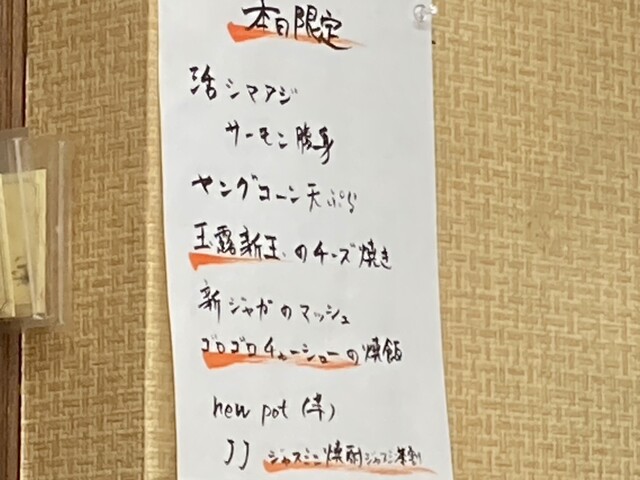 本日限定
活シマアジ
サーモン腹身
ヤングコーン天ぷら
玉露新玉のチーズ焼き
新ジャガのマッシュ
ゴロゴロチャーシューの焼飯
new pot (芋)
JJ ジャスミン焼酎ジャスミン茶割